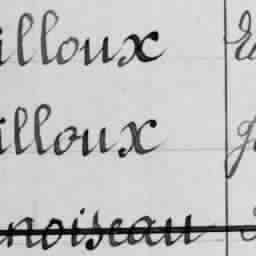 illoux
illoux
noiseau